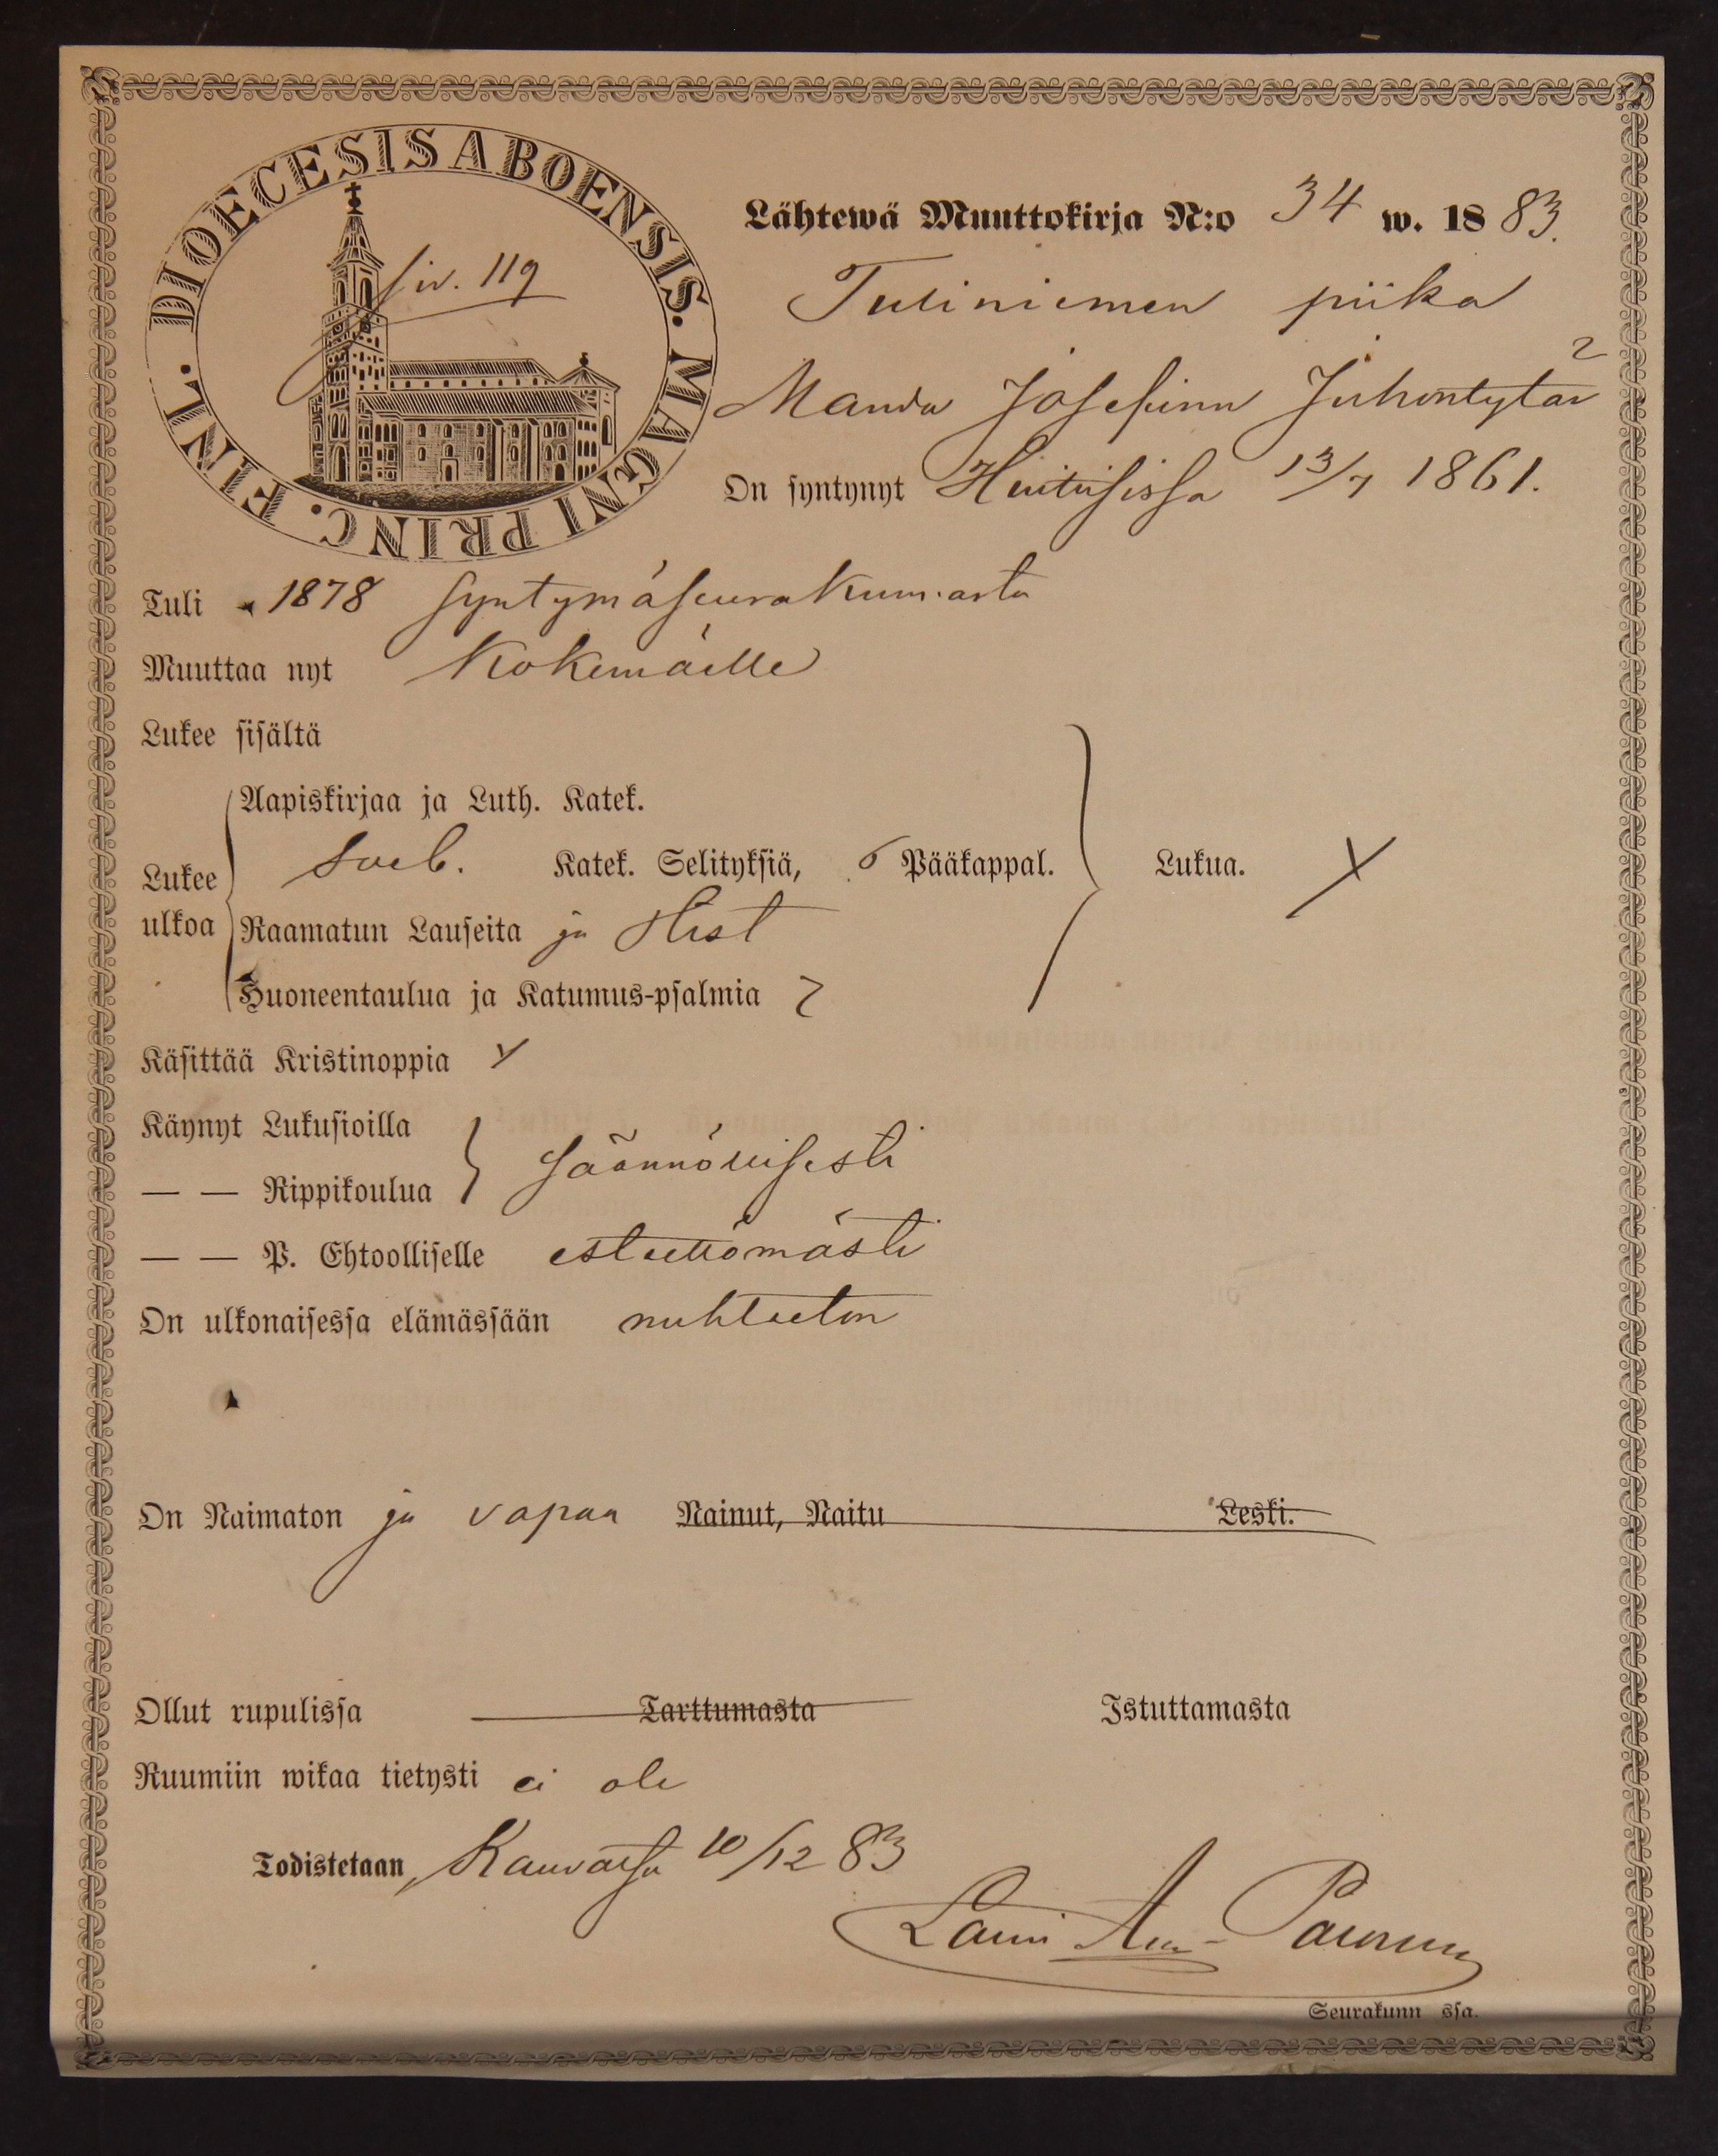 DIOECESIS ABOENSIS. MAGNI PRINC. FINL.
siv. 119
Lähtewä Muuttokirja N:o 34 w. 1883.
piika
Manda Josefiina Juhontytär 2
On syntynyt Huitisissa 13/7 1861.
Tuli 1878 syntymäseurakunnasta
Muuttaa nyt Kokemäelle
Lukee sisältä
Aapiskirjaa ja Luth. Katek.
Lukee ulkoa Sveb. Katek. Selityksiä, 6 Pääkappal. Lukua. X
Raamatun Lauseita ja Hist
Huoneentaulua ja Katumus-psalmia 7
Käsittää Kristinoppia
Käynyt Lukusioilla
— — Rippikoulua säännöllisesti
— — P. Ehtoolliselle esteettömästi
On ulkonaisessa elämässään nuhteeton
On Naimaton ja vapaa Nainut, Naitu Leski.
Ollut rupulissa Tarttumasta Istuttamasta
Ruumiin wikaa tietysti ei ole
Todistetaan, Kauvatsa 10/12 83
Lauri
Seurakunn ssa.